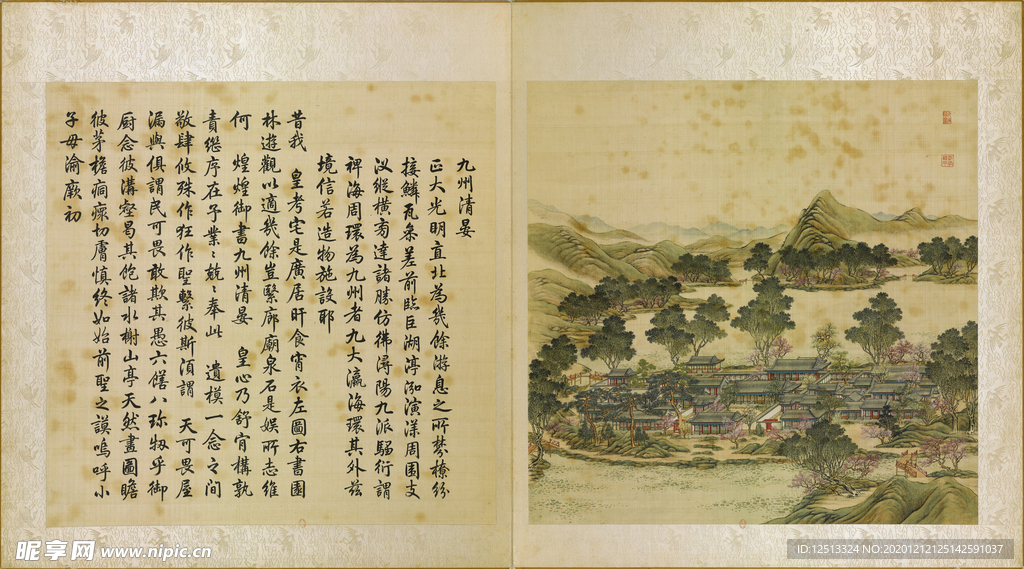 九州清晏
正大光明直北為幾餘游息之所棼橑紛
接鱗瓦參差前臨巨湖渟泓演漾周圍支
汊縱橫旁達諸勝仿彿潯陽九派騶衍謂
裨海周環為九州者九大瀛海環其外茲
境信若造物施設耶
昔我 皇考宅是廣居旰食宵衣左圖右書園
林遊觀以適幾餘豈繄廊廟泉石是娛所志維
何 煌煌御書九州清晏 皇心乃舒肯構孰
責繼序在予業〻兢〻奉此 遺模一念之间
敬肆攸殊作狂作聖繫彼斯須謂 天可畏屋
漏與俱謂民可畏敢欺其愚六膳八珎牣乎御
厨念彼溝壑曷其飽諸水榭山亭天然畫圖瞻
彼茅檐痌瘝切膚慎終如始前聖之謨嗚呼小
子毋渝厥初
昵享网 www.nipic.cn
ID:12513324 NO:20201212125142591037